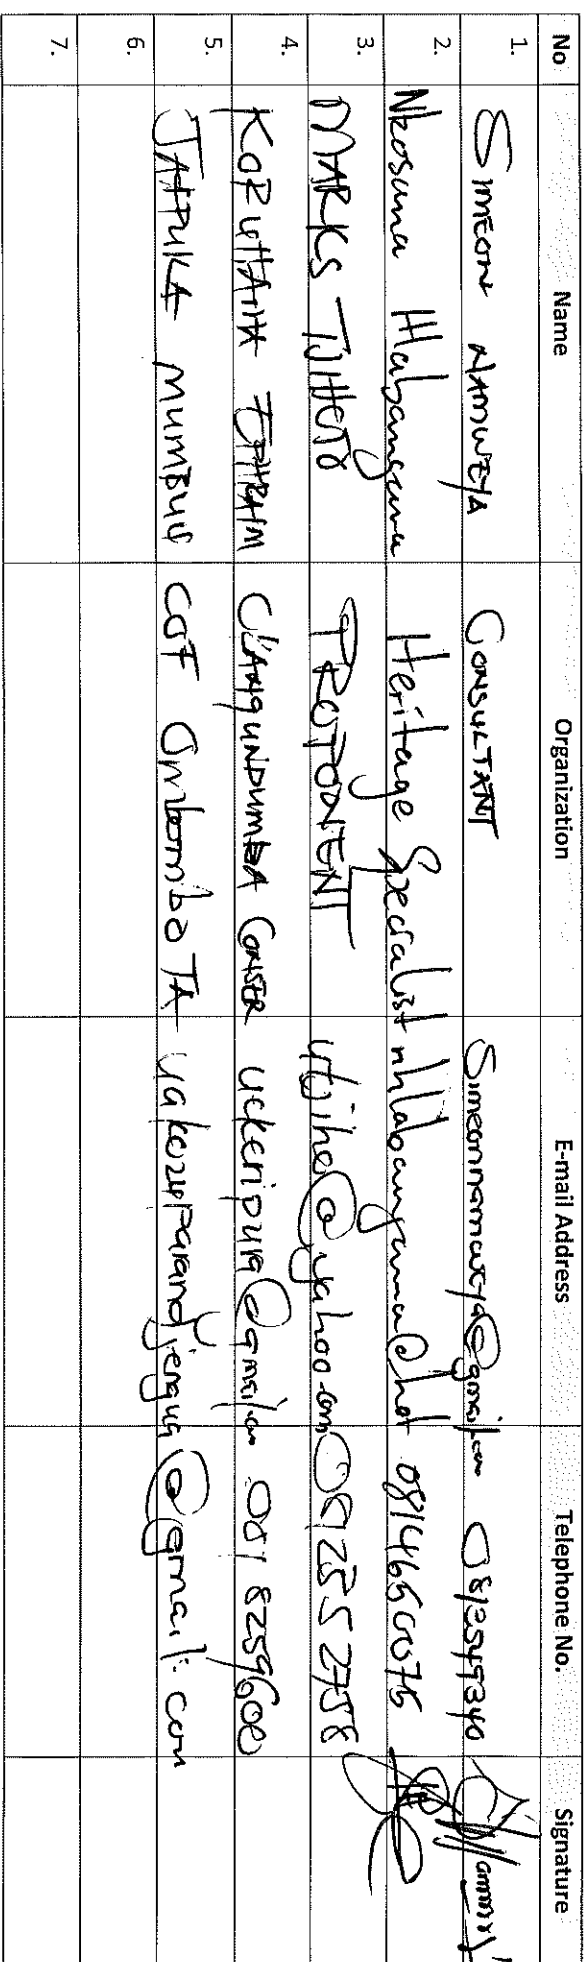 No Name Organization E-mail Address Telephone No. Signature
1. SIMEON NAMWEYA CONSULTANT Simeonnamweya@gmail.com 0813549340
2. Nkosana Hlabangana Heritage Specialist nhlabangana@hot 0814650075
3. MARKS TJIHOTO PROPONENT utjiho@yahoo.com 0812552758
4. EPHRAIM uckeripura@gmail.com 0818259600
5. JAHPUKA MUMBUU Ombombo TA @gmail.com
6.
7.